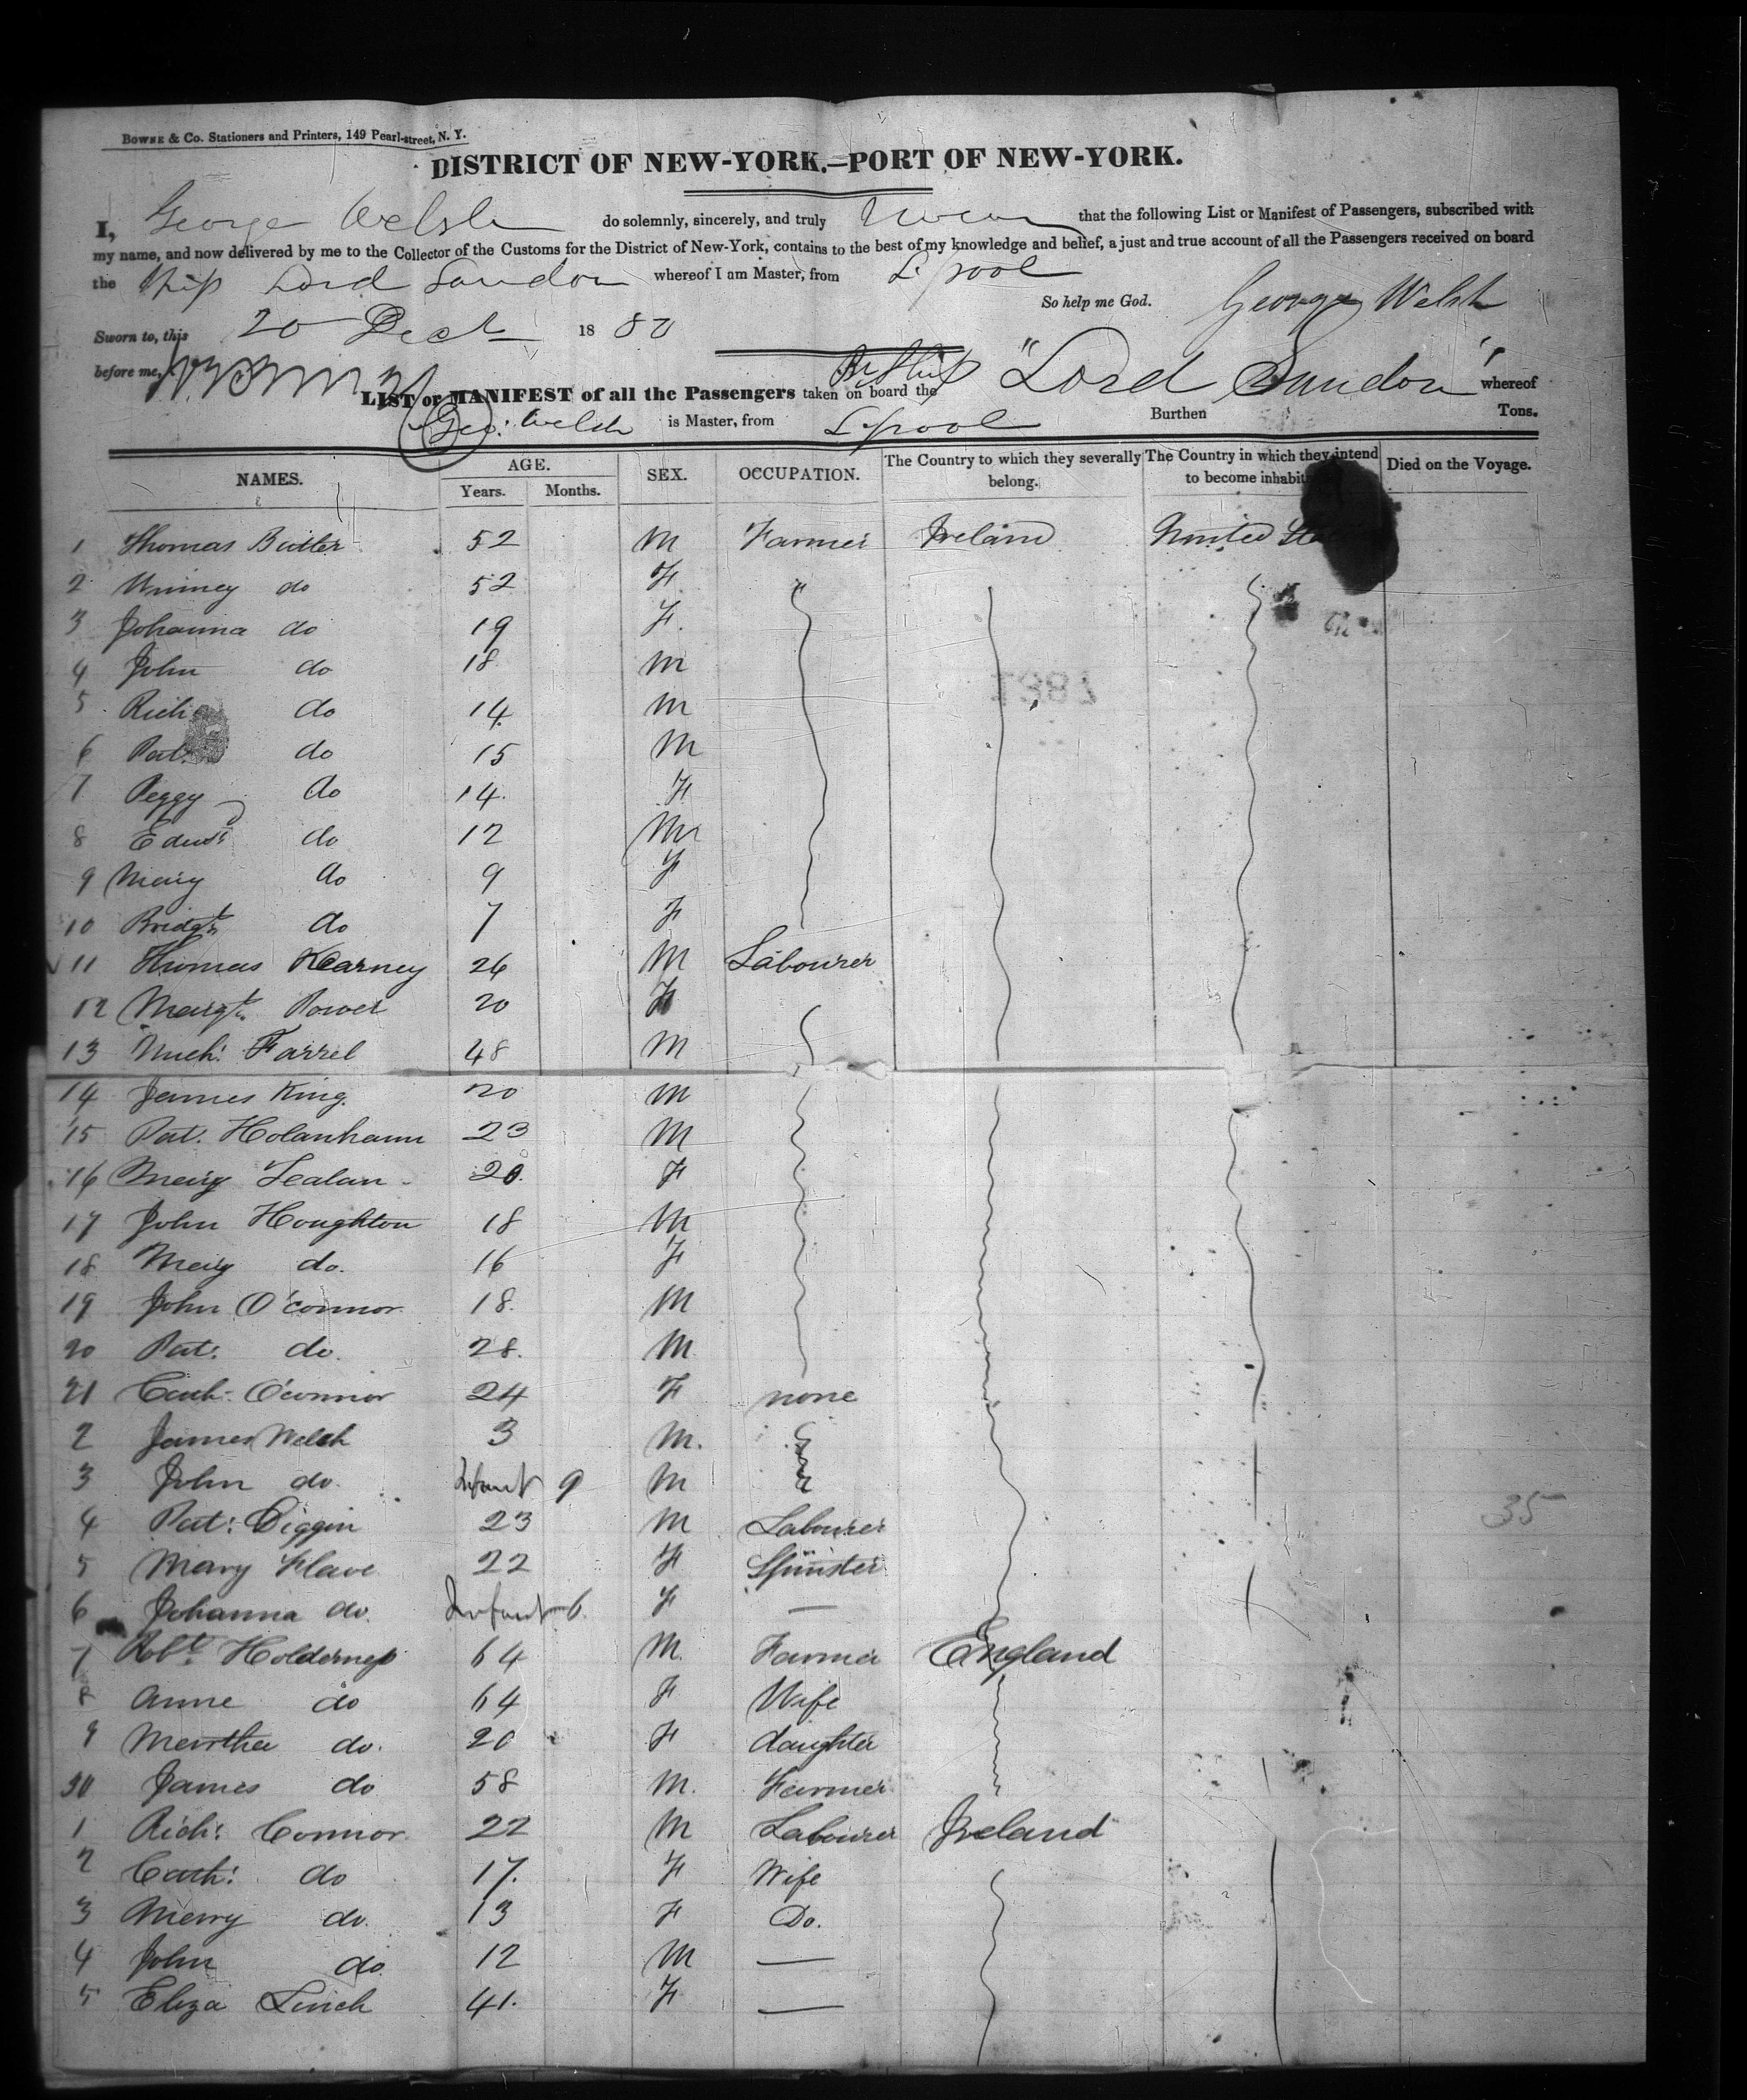 BOWNE & CO. Stationers and Printers, 149 Pearl-street, N. Y.
DISTRICT OF NEW-YORK.—PORT OF NEW-YORK.
I, George Welsh do solemnly, sincerely, and truly swear that the following List or Manifest of Passengers, subscribed with
my name, and now delivered by me to the Collector of the Customs for the District of New-York, contains to the best of my knowledge and belief, a just and true account of all the Passengers received on board
the Ship Lord Sandon whereof I am Master, from L'pool
So help me God. George Welsh
Sworn to, this 20 Dect 18
before me,
LIST or MANIFEST of all the Passengers taken on board the Br Ship "Lord Sandon" whereof
Geo: Welsh is Master, from L'pool Burthen Tons.
NAMES. AGE. Years. Months. SEX. OCCUPATION. The Country to which they severally belong. The Country in which they intend to become inhabit Died on the Voyage.
1 Thomas Butler 52 M Farmer Ireland United Sta
2 Winney do 52 F "
3 Johanna do 19 F.
4 John do 18 M
5 Rich do 14 M
6 Pat: do 15 M
7 Peggy do 14. F
8 Edwd do 12 M
9 Mary do 9 F
10 Bridgt do 7 F
11 Thomas Kearney 26 M Labourer
12 Margt. Power 20 F
13 Mich: Farrel 48 M
14 James King. 20 M
15 Pat. Holanhann 23 M
16 Mary 20. F
17 John Houghton 18 M
18 Mary do. 16 F
19 John O'connor 18. M
20 Pat: do. 28. M
21 Cath: O'connor 24 F none
2 James Welsh 3 M.
3 John do. Infant 9 M
4 Pat: Diggin 23 M Labourer
5 Mary Flave 22 F Spinster
6 Johanna do. Infant 6. F —
7 Robt. Holderness 64 M. Farmer England
8 Anne do 64 F Wife
9 Martha do. 20 F daughter
30 James do 58 M. Farmer
1 Rich: Connor 22 M Labourer Ireland
2 Cath: do 17. F Wife
3 Merry do. 13 F Do.
4 John do 12 M —
5 Eliza Linch 41. F —
35